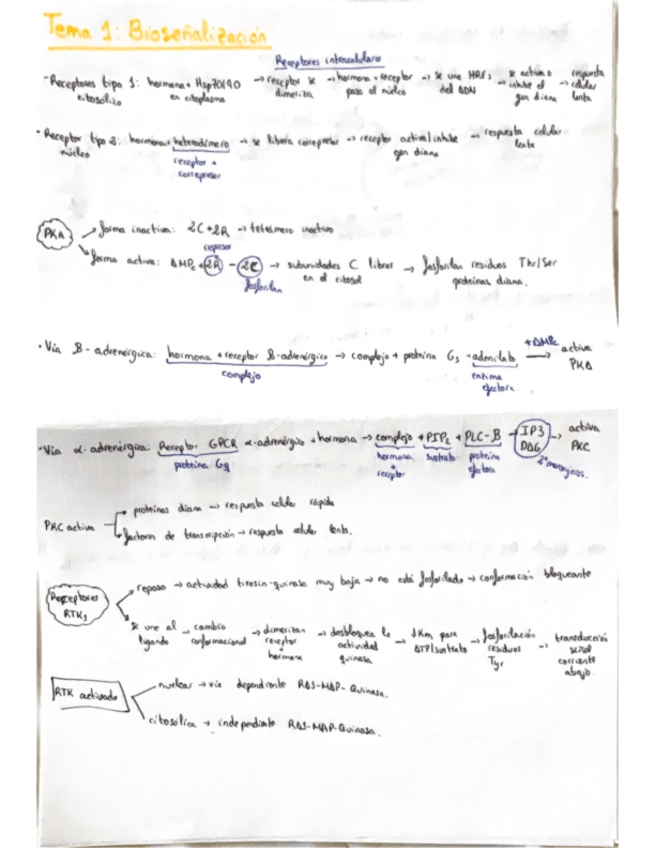 Tema 1: Bioseñalización
Receptores intracelulares
· Receptores tipo 1: hormona + Hsp70/90 → receptor se → hormona + receptor → se une HREs → se activa o → respuesta
citosólico en citoplasma dimeriza pasa al núcleo del ADN inhibe el celular
gen diana lenta
· Receptor tipo 2: hormona + heterodímero → se libera correpresor → receptor activa/inhibe → respuesta celular
núcleo gen diana lenta
receptor +
correpresor
PKA
forma inactiva: 2C + 2R → tetrámero inactivo
represor
forma activa: AMPc + 2R - 2C → subunidades C libres → fosforilan residuos Thr/Ser
fosforilan en el citosol proteínas diana.
· Vía B-adrenérgica: hormona + receptor B-adrenérgico → complejo + proteína Gs + adenilato → +AMPc activa
complejo enzima PKA
efectora
· Vía α-adrenérgica: Receptor GPCR α-adrenérgico + hormona → complejo + PIP2 + PLC-B → IP3 → activa
proteína Gq hormona sustrato proteína DAG PKC
+ efectora 2º mensajeros.
receptor
PKC activa
proteínas diana → respuesta celular rápida
factores de transcripción → respuesta celular lenta.
Receptores
RTKs
reposo → actividad tirosin-quinasa muy baja → no está fosforilado → conformación bloqueante
se une al → cambio → dimerizan → desbloquea la → ↓Km para → fosforilación → transducción
ligando conformacional receptor actividad ATP/sustrato residuos señal
+ quinasa Tyr corriente
hormona abajo.
RTK activado
nuclear → vía dependiente RAS-MAP-Quinasa.
citosólica → independiente RAS-MAP-Quinasa.